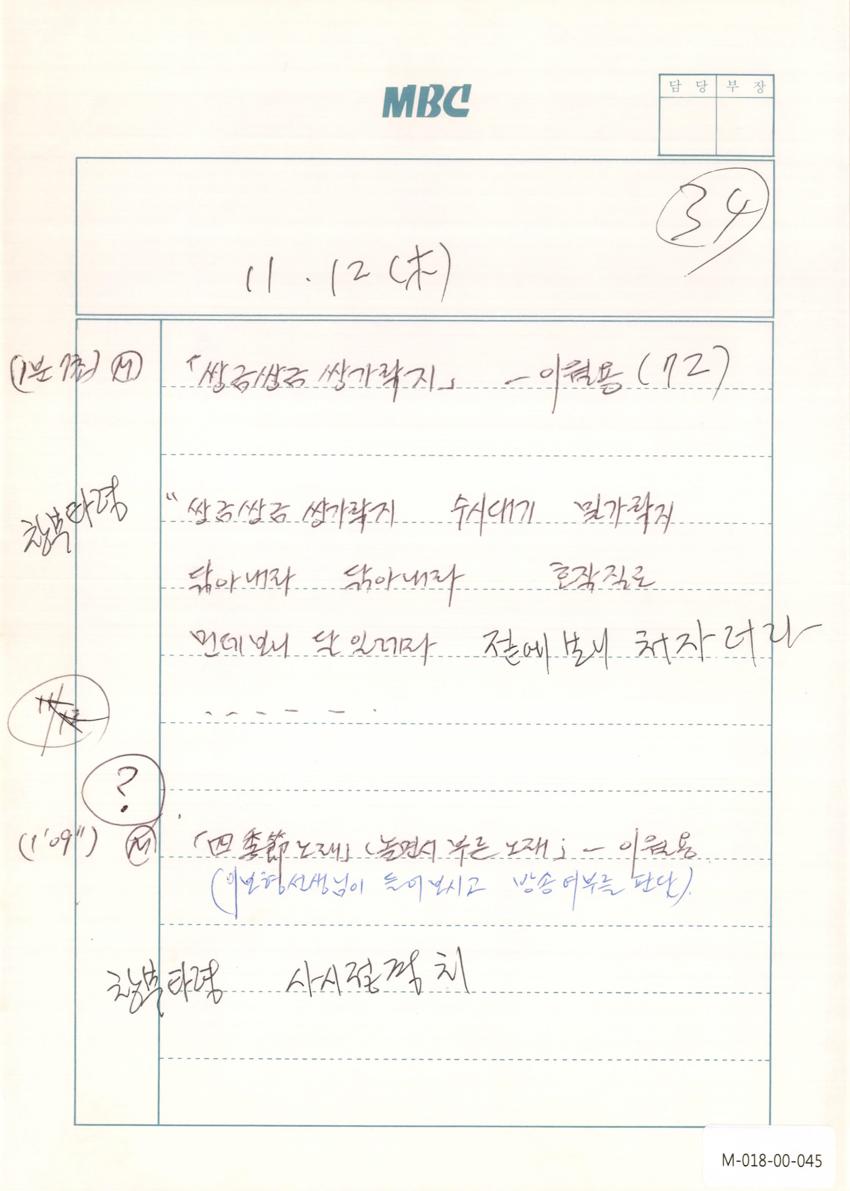 MBC
담당 부장
34
11.12(木)
(1분7초) M 「쌍금쌍금 쌍가락지」 - 이월용(72)
창부타령 "쌍금쌍금 쌍가락지 수시대기 밀가락지
닦아내라 닦아내라 호작질로
먼데보니 달일레라 젙에보니 처자러라
- - - - - -
?
(1'09") M 「四季節노래」(놀면서 부른 노래; - 이월용
(이보형선생님이 들어보시고 방송여부를 판단).
창부타령 사시절경치
M-018-00-045